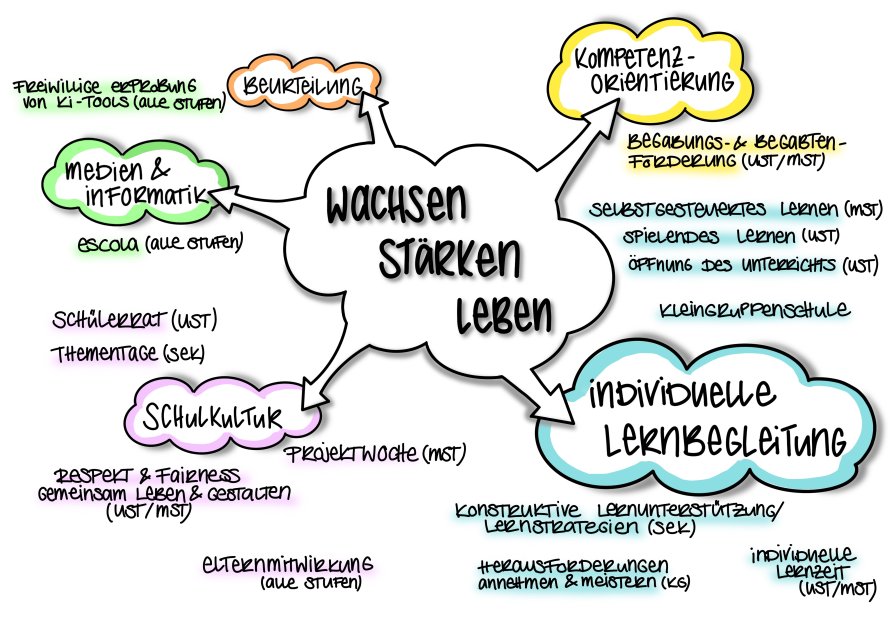 FREIWILLIGE ERPROBUNG
VON KI-TOOLS (ALLE STUFEN)
BEURTEILUNG
KOMPETENZ-
ORIENTIERUNG
BEGABUNGS- & BEGABTEN-
FÖRDERUNG (UST/MST)
MEDIEN &
INFORMATIK
ESCOLA (ALLE STUFEN)
WACHSEN
STÄRKEN
LEBEN
SELBSTGESTEUERTES LERNEN (MST)
SPIELENDES LERNEN (UST)
ÖFFNUNG DES UNTERRICHTS (UST)
KLEINGRUPPENSCHULE
SCHÜLERRAT (UST)
THEMENTAGE (SEK)
SCHULKULTUR
PROJEKTWOCHE (MST)
RESPEKT & FAIRNESS
GEMEINSAM LEBEN & GESTALTEN
(UST/MST)
ELTERNMITWIRKUNG
(ALLE STUFEN)
INDIVIDUELLE
LERNBEGLEITUNG
KONSTRUKTIVE LERNUNTERSTÜTZUNG/
LERNSTRATEGIEN (SEK)
HERAUSFORDERUNGEN
ANNEHMEN & MEISTERN (KG)
INDIVIDUELLE
LERNZEIT
(UST/MST)